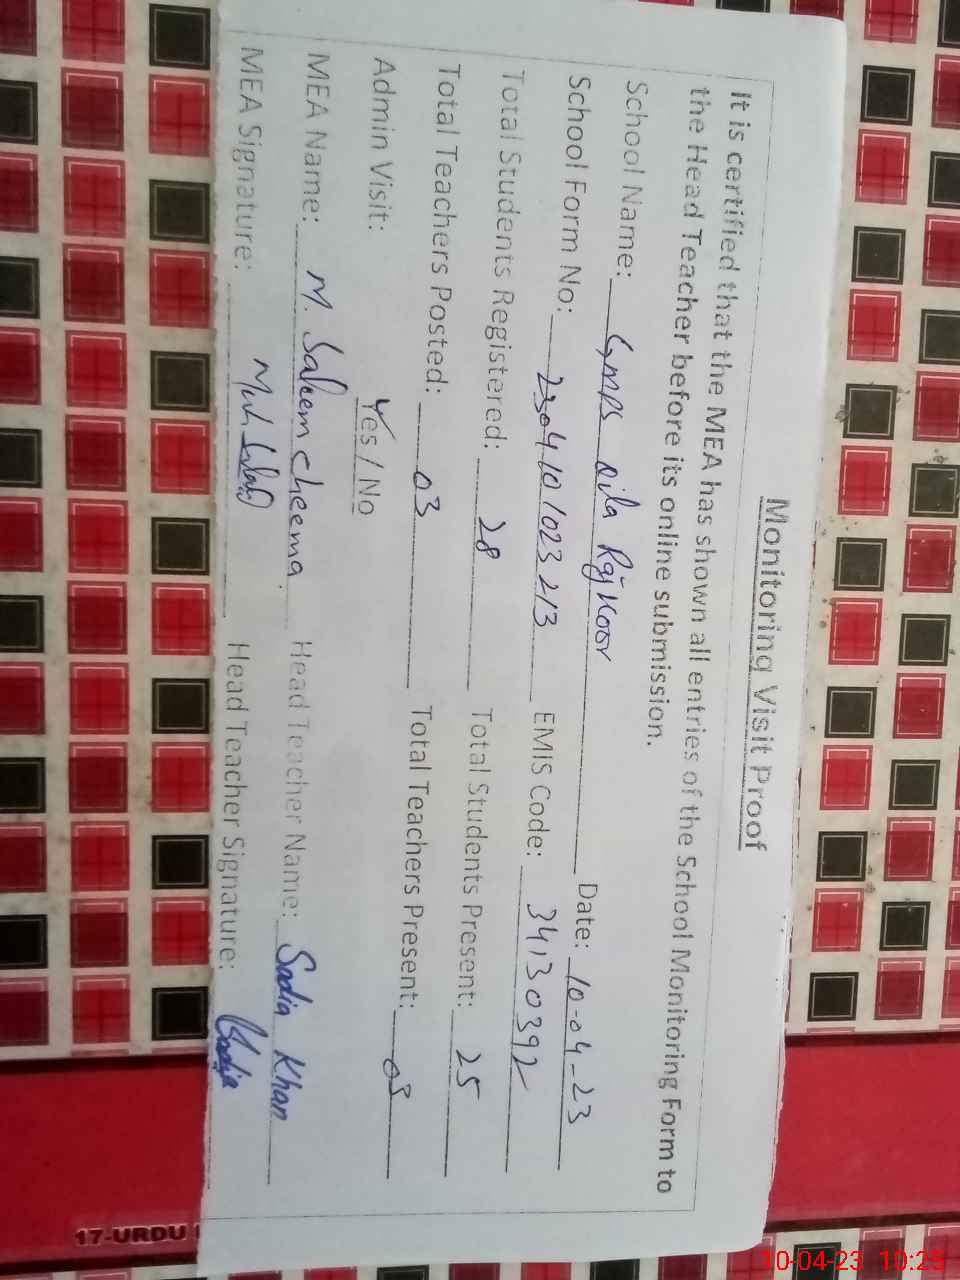 Monitoring Visit Proof
It is certified that the MEA has shown all entries of the School Monitoring Form to
the Head Teacher before its online submission.
School Name: GMPS Qila Raj Koor Date: 10-04-23
School Form No: 2304101023213 EMIS Code: 34130392
Total Students Registered: 28 Total Students Present: 25
Total Teachers Posted: 03 Total Teachers Present: 03
Admin Visit: Yes / No
MEA Name: M. Saleem Cheema Head Teacher Name: Sadia Khan
MEA Signature: Head Teacher Signature: Sadia
17-URDU
10-04-23 10:25